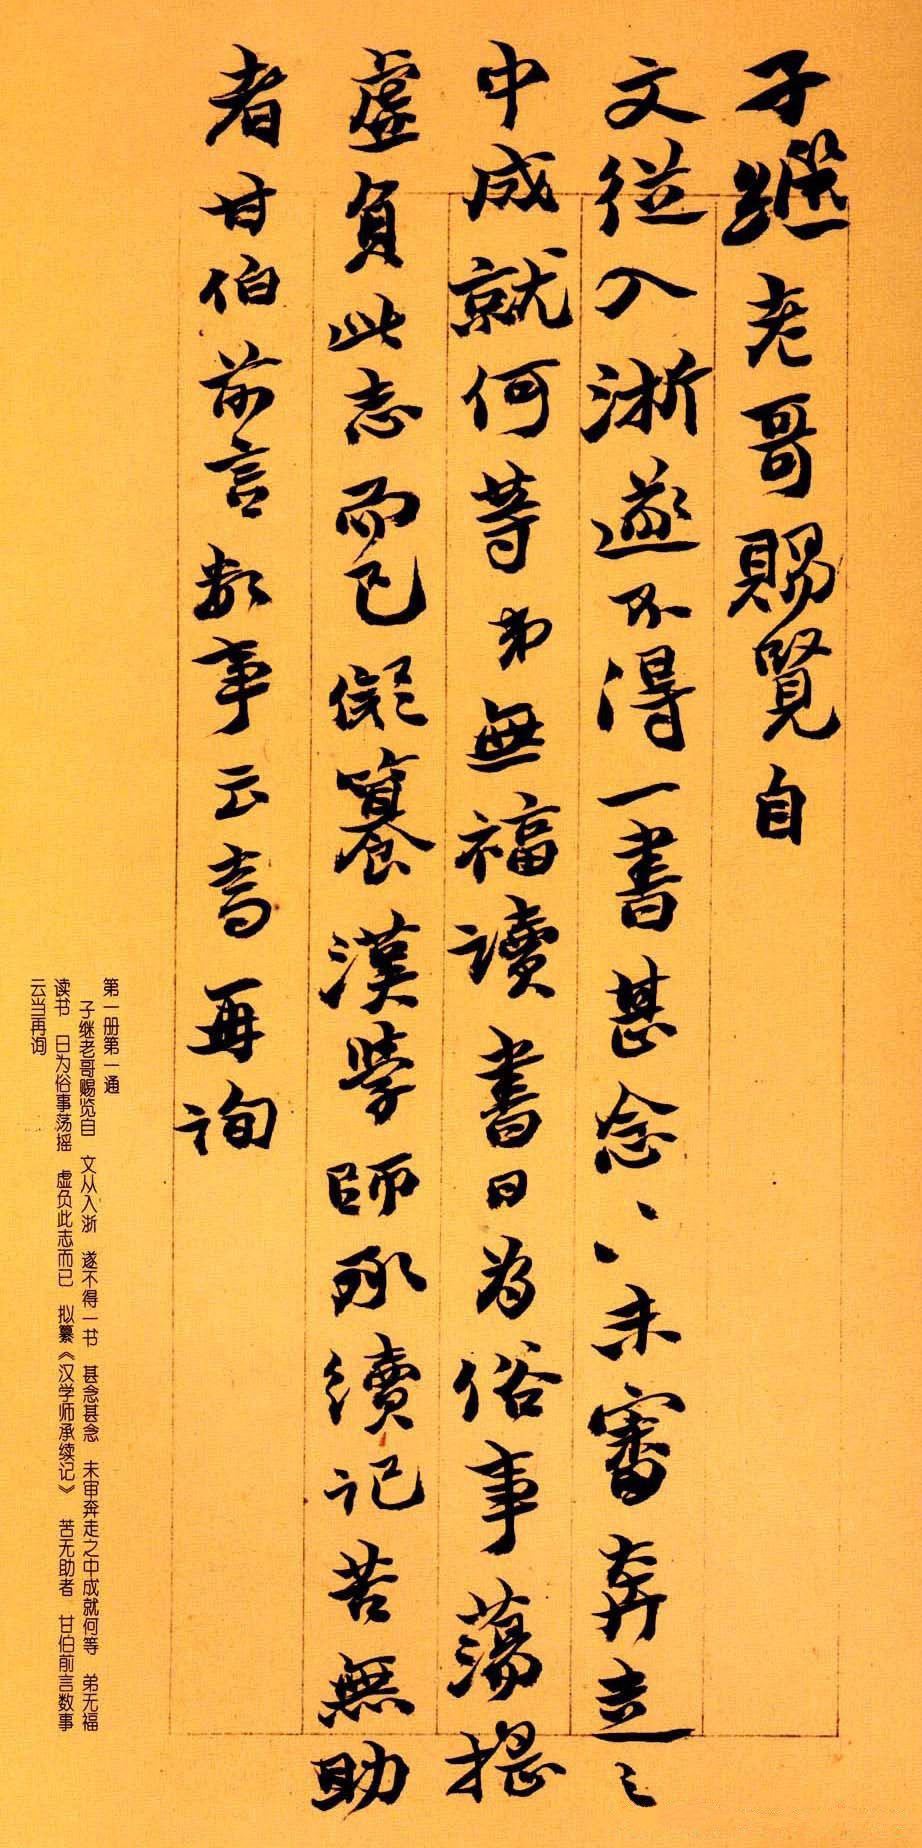 子繼老哥賜覽自
文從入浙遂不得一書甚念〻未審奔走之
中成就何等弟無福讀書日為俗事蕩搖
虛負此志而已儗纂漢學師承續記苦無助
者甘伯前言數事云當再詢
第一册第一通
子继老哥赐览自 文从入浙 遂不得一书 甚念甚念 未审奔走之中成就何等 弟无福
读书 日为俗事荡摇 虚负此志而已 拟纂《汉学师承续记》 苦无助者 甘伯前言数事
云当再询